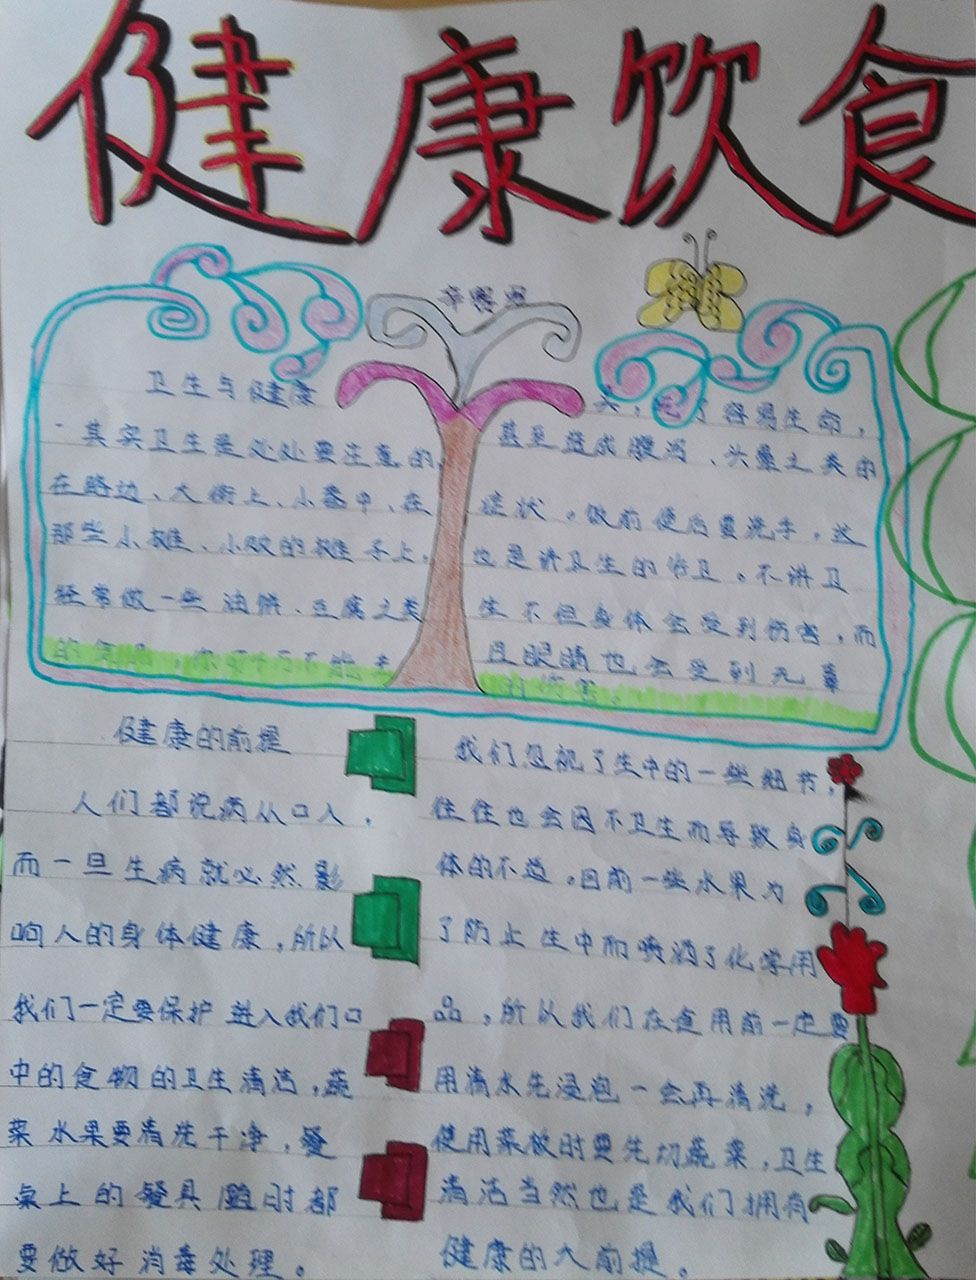 健康饮食
卫生与健康
其实卫生是处处要注意的,
在路边、大街上、小巷中、在
那些小摊、小贩的摊子上,
经常做一些油饼、豆腐之类
的食品,你可千万不能去
买,吃了容易生命,
甚至造成腹泻、头晕之类的
症状。饭前便后要洗手,这
也是讲卫生的行为。不讲卫
生不但身体会受到伤害,而
且眼睛也会受到无辜
的伤害。
健康的前提
人们都说病从口入,
而一旦生病就必然影
响人的身体健康,所以
我们一定要保护进入我们口
中的食物的卫生清洁,蔬
菜水果要清洗干净,餐
桌上的餐具随时都
要做好消毒处理。
我们忽视了生中的一些细节,
往往也会因不卫生而导致身
体的不适。目前一些水果为
了防止生中而喷洒了化学用
品,所以我们在食用前一定要
用清水先浸泡一会再清洗,
使用菜板时要先切蔬菜,卫生
清洁当然也是我们拥有
健康的大前提。